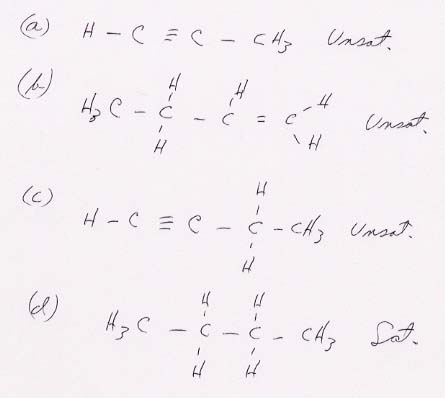 (a) H - C ≡ C - CH3 Unsat.
(b)
H H
H3C - C - C = C - H Unsat.
H \ H
(c)
H
H - C ≡ C - C - CH3 Unsat.
H
(d)
H H
H3C - C - C - CH3 Sat.
H H